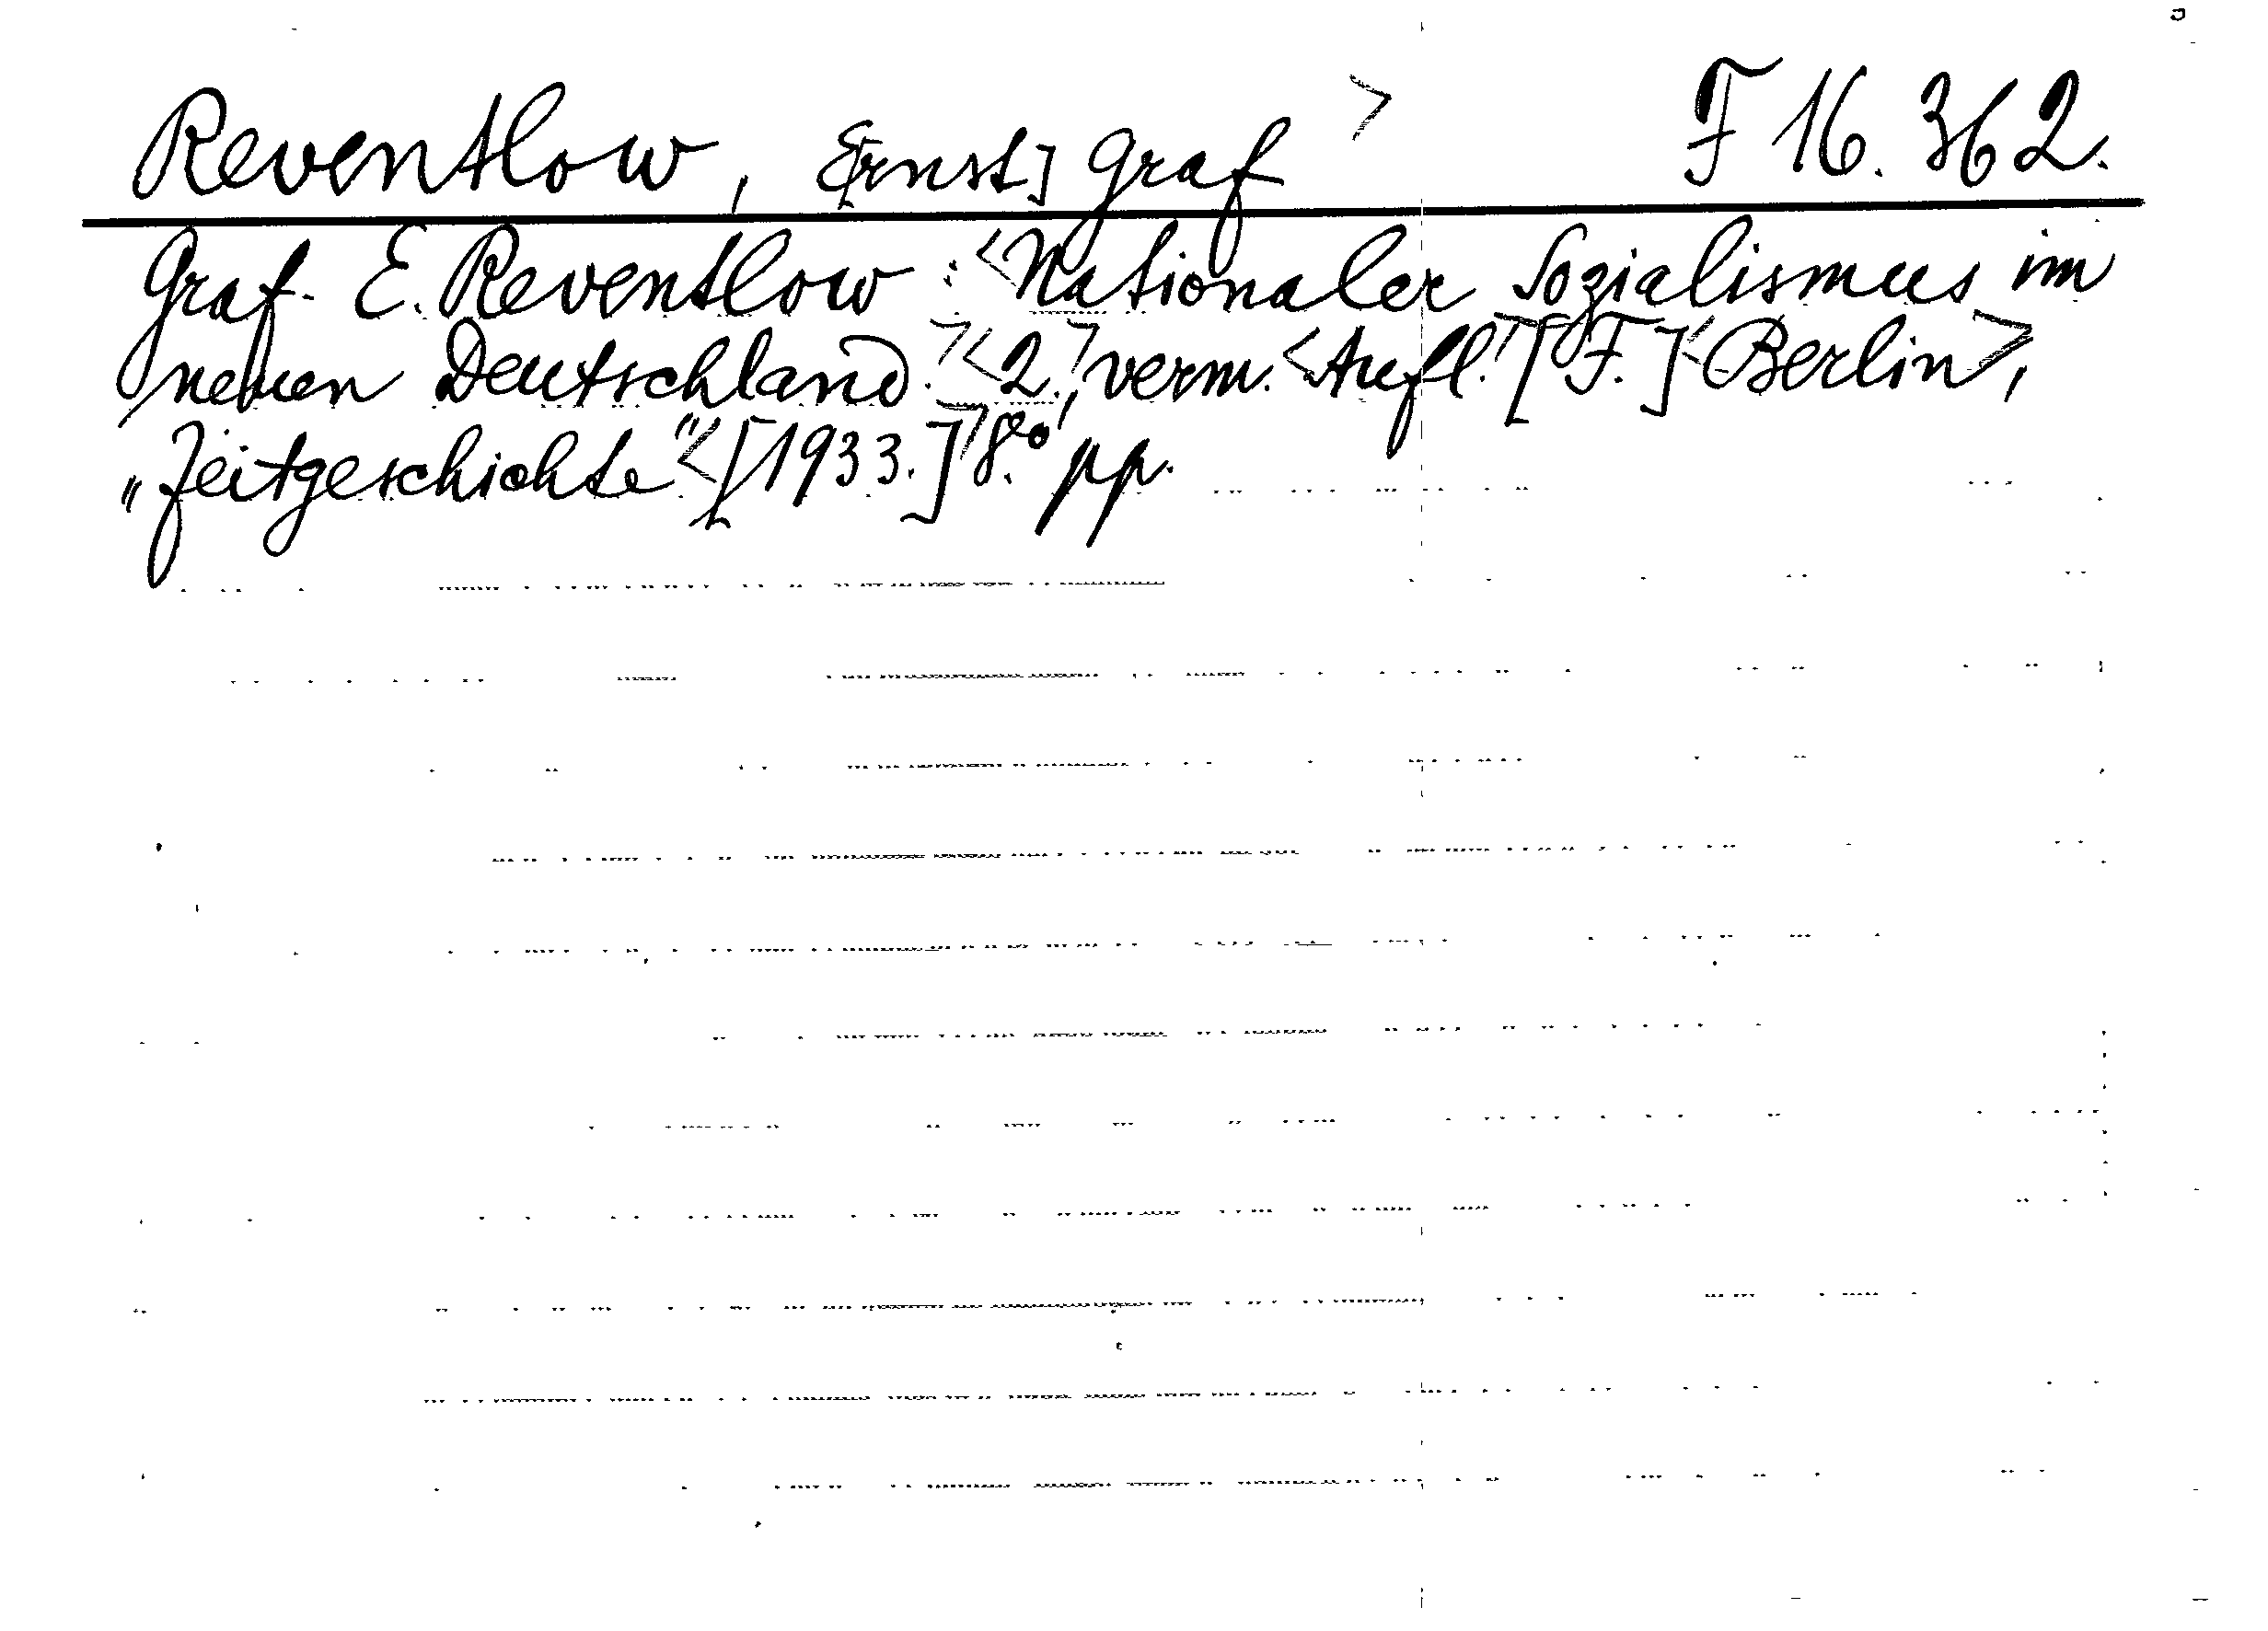 Reventlow, E[rnst] Graf> F 16.362.
Graf E. Reventlow: <Nationaler Sozialismus im
neuen Deutschland.> <2.,> verm. <Aufl.> [F.] <Berlin>,
„Zeitgeschichte” <[1933.]> 8.° pp.